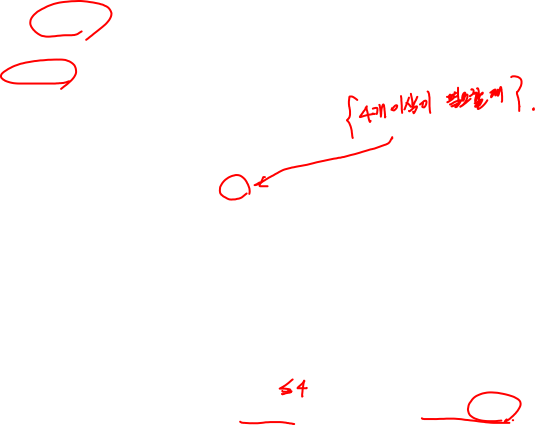 {4개 이상이 필요할 때}.
≤4